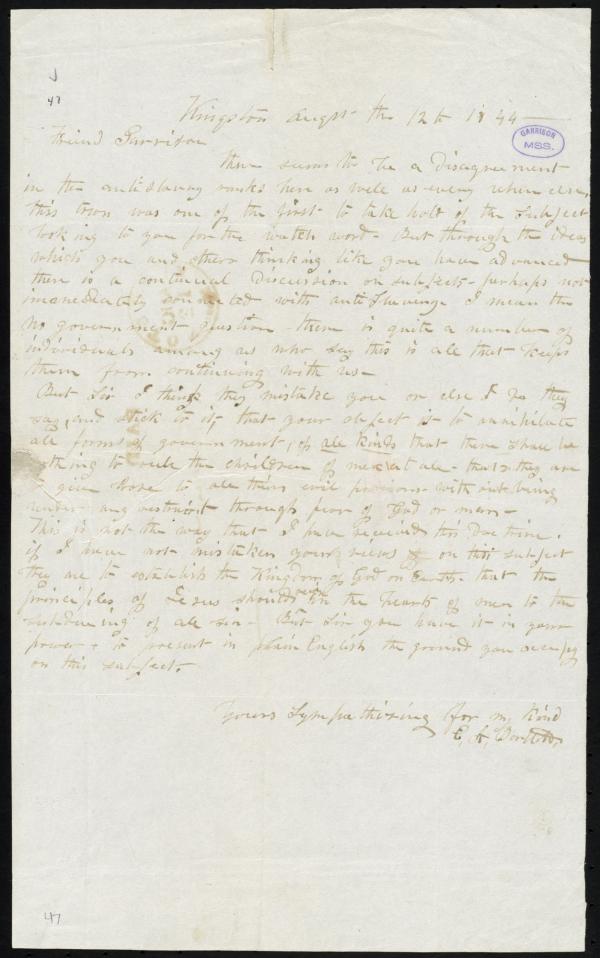 47
Kingston Augst the 12th 1844
GARRISON
MSS.
Friend Garrison
there seems to be a Disagreement
in the antislavery ranks here as well as every where else,
this town was one of the first to take holt of the subject
looking to you for the watch word - But through the ideas
which you and others thinking like you have advanced
there is a continual Discussion on subjects - perhaps not
immediately connected with antislavery I mean the
no government question - there is quite a number of
individuals among us who say this is all that keeps
them from continuing with us -
But Sir I think they mistake you or else I do they
say, and stick to it, that your object is to annihilate
all forms of government, of all kinds that there shall be
nothing to rule the children of men at all - that they are
give loose to all their evil passions without being
under any restraint through fear of God or man -
This is not the way that I have received this Doctrine.
if I have not mistaken your views on this subject
they are to establish the Kingdom of God on Earth - that the
principles of Jesus should reign in the hearts of men to the
subdueing of all sin - But Sir you have it in your
power - to present in plain English the ground you occupy
on this subject.
Yours Sympathising for my kind
E. A.
47